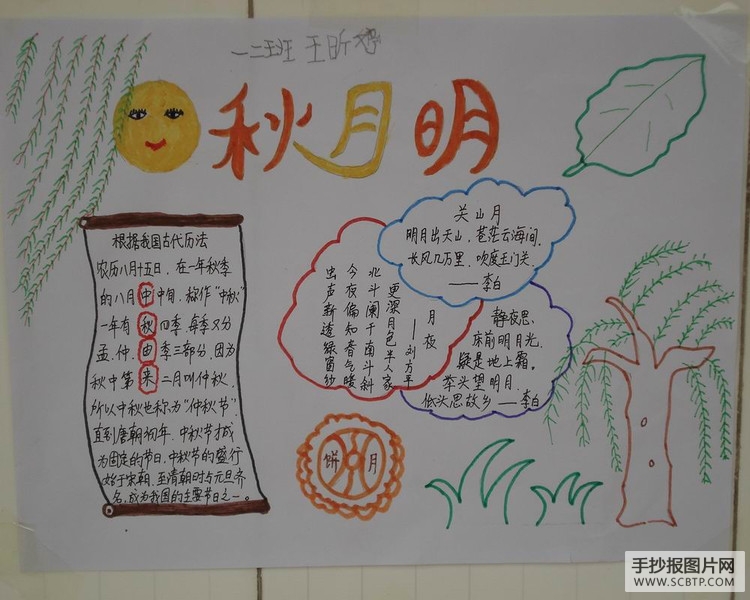 一二班 王昕
秋月明
根据我国古代历法
农历八月十五日,在一年秋季
的八月中中旬,故作“中秋”
一年有秋四季,每季又分
孟、仲、由季三部分,因为
秋中第来二月叫仲秋,
所以中秋也称为“仲秋节”,
直到唐朝初年,中秋节才成
为固定的节日,中秋节的盛行
始于宋朝,至清朝时与元旦齐
名,成为我国的主要节日之一。
关山月
明月出天山,苍茫云海间,
长风几万里,吹度玉门关。
——李白
月夜——刘方平
更深月色半人家
北斗阑干南斗斜
今夜偏知春气暖
虫声新透绿窗纱
静夜思
床前明月光,
疑是地上霜。
举头望明月,
低头思故乡——李白
饼 月
手抄报图片网
WWW.SCBTP.COM